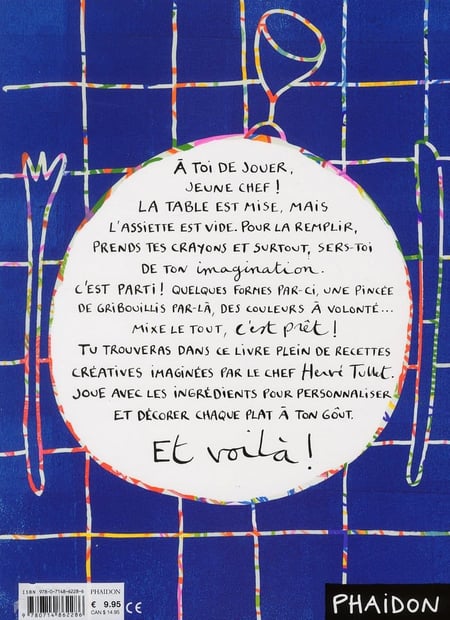 À TOI DE JOUER,
JEUNE CHEF !
LA TABLE EST MISE, MAIS
L'ASSIETTE EST VIDE. POUR LA REMPLIR,
PRENDS TES CRAYONS ET SURTOUT, SERS-TOI
DE TON imagination.
C'EST PARTI ! QUELQUES FORMES PAR-CI, UNE PINCÉE
DE GRIBOUILLIS PAR-LÀ, DES COULEURS À VOLONTÉ...
MIXE LE TOUT, c'est prêt !
TU TROUVERAS DANS CE LIVRE PLEIN DE RECETTES
CRÉATIVES IMAGINÉES PAR LE CHEF Hervé Tullet.
JOUE AVEC LES INGRÉDIENTS POUR PERSONNALISER
ET DÉCORER CHAQUE PLAT À TON GOÛT.
Et voilà !
ISBN 978-0-7148-6228-6
PHAIDON
€ 9.95
CAN $ 14.95
CE
9 780714 862286
PHAIDON